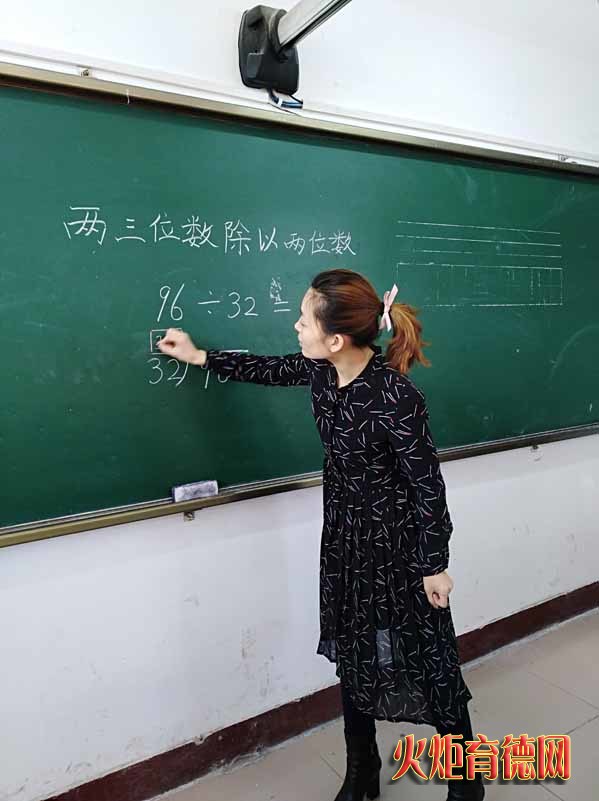 两三位数除以两位数
96÷32=
32
火炬育德网